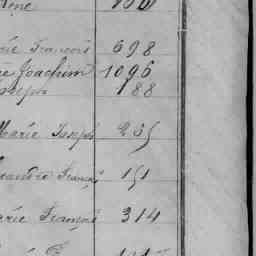 rie François 698
rie Joachim 1096
seph 188
Marie Joseph 235
eandre François 151
arie François 314